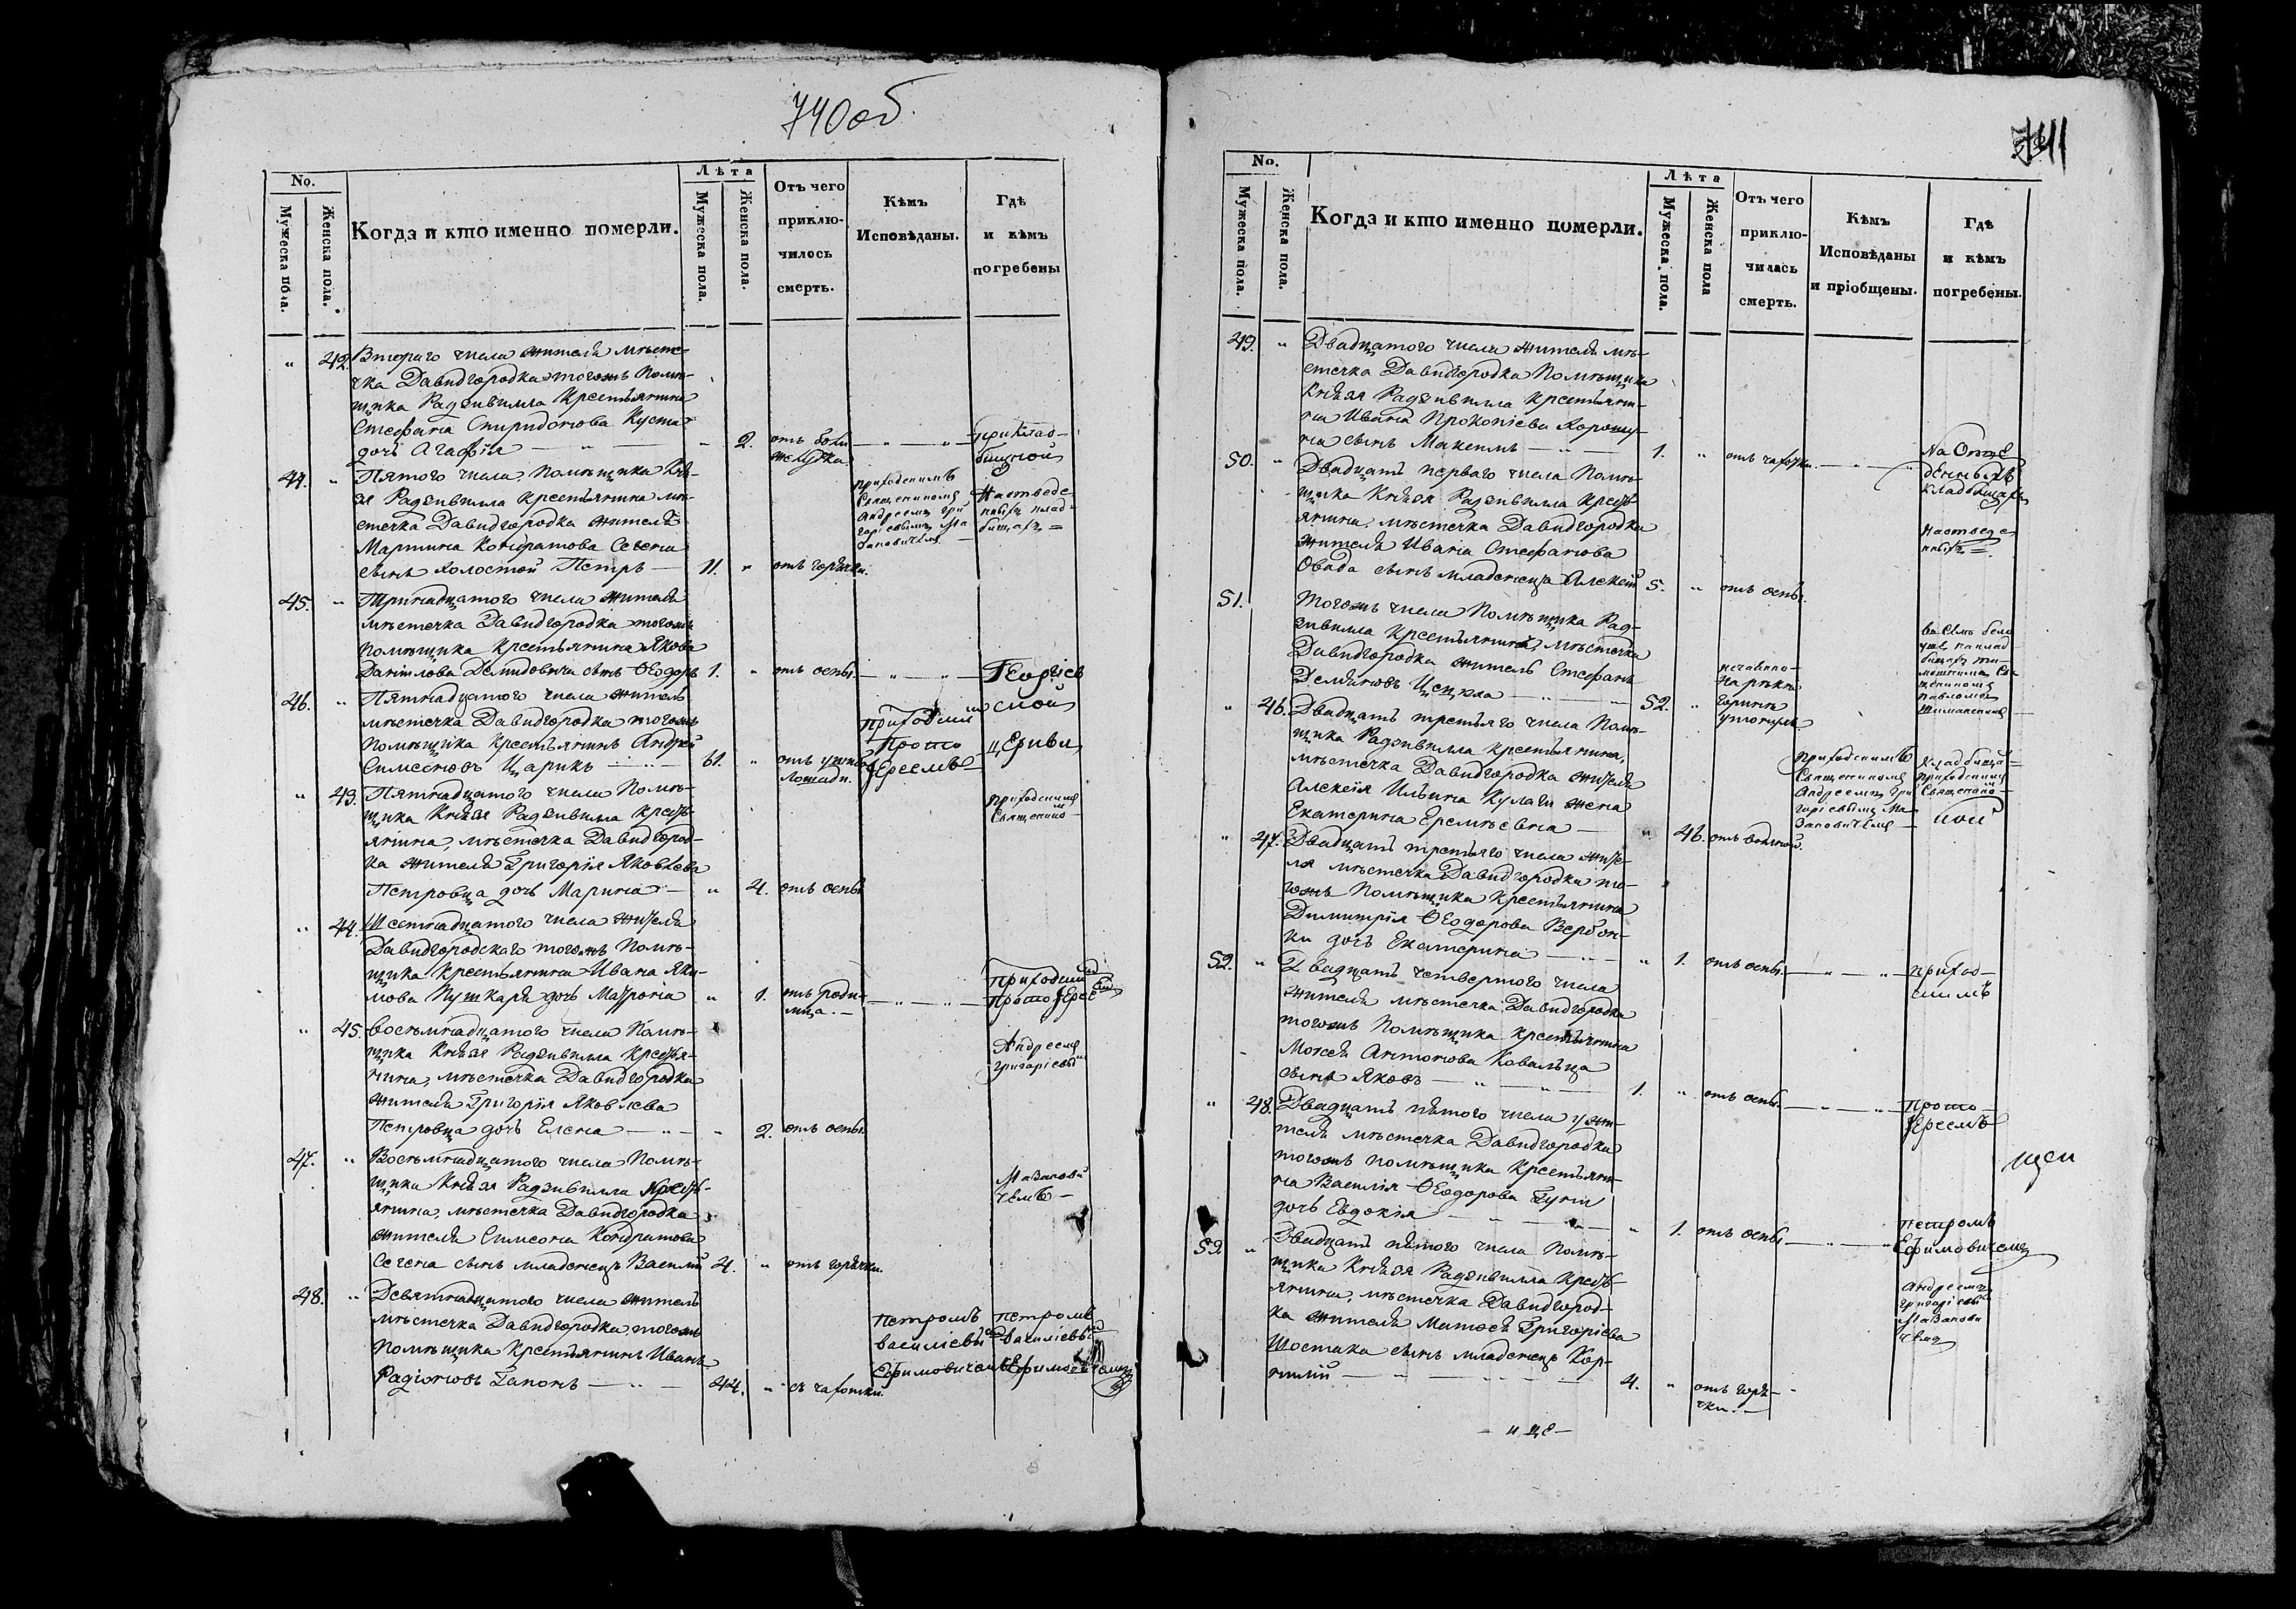 740 об.
No.
Мужеска пола.
Женска пола.
Когда и кто именно померли.
Лѣта
Мужеска пола.
Женска пола.
Отъ чего
приклю-
чилось
смерть.
Кѣмъ
Исповѣданы.
Гдѣ
и кѣмъ
погребены
" 42. Втораго числа жителя мѣсте-
чка Давидгородка тогожъ Помѣ-
щика Радзивилла Крестьянина
Стефана Спиридонова
дочь Агафія — " — " 2. отъ боли — " — " приклад-
желудка. бищной
44. " Пятого числа, Помѣщика Кня-
зя Радзивилла крестьянина мѣ-
стечка Давидгородка жителя
Мартина Кондратова Сегеня
сынъ холостой Петръ — 11. " отъ горячки.
приходскимъ
Священникомъ
Андреемъ Гри
горіевымъ Ма
заповичемъ
На отведе-
нныхъ клад-
бищахъ =
45. " Тринадцатого числа жителя
мѣстечка Давидгородка тогожъ
помѣщика крестьянина Якова
Данилова Демидовича сынъ Ѳеодоръ 1. " отъ оспы. — " — " — Георгіев
46. " Пятнадцатого числа житель
мѣстечка Давидгородка тогожъ
Помѣщика Крестьянинъ Андрей
Симеоновъ Царикъ — " — 61. " отъ
Лошади.
приходскимъ
Прото
Іереемъ
ской
церкви
" 43. Пятнадцатого числа Помѣ-
щика Князя Радзивилла Кресть-
янина, мѣстечка Давидгород-
ка жителя Григорія Яковлева
Петровца дочь Марина — " 4. отъ оспы
приходскимъ
Священно
" 44. Шестнадцатого числа жителя
Давидгородскаго тогожъ Помѣ-
щика Крестьянина Ивана Яки-
мова Пушкаря дочь Матрона " 1. отъ роди- — " — " —
мца. —
приходским
Протоіерее
" 45. Восемнадцатого числа Помѣ-
щика Князя Радзивилла Крестья-
нина, мѣстечка Давидгородка
жителя Григорія Яковлева
Петровца дочь Елена — " — " 2. отъ оспы
Андреемъ
Григоріевы
47. " Восемнадцатого числа Помѣ-
щика Князя Радзивилла Кресть-
янина, мѣстечка Давидгородка
жителя Симеона Кондратова
Сегеня сынъ младенецъ Василій 4. " отъ горячки.
Мазапови
чемъ —
48. " Девятнадцатого числа житель
мѣстечка Давидгородка, тогожъ
Помѣщика Крестьянинъ Иванъ
Радіоновъ Гапонъ — " — 44. " съ чахотки
Петромъ
Василіевы
Ефимовичемъ
Петромъ
Василіевы
Ефимовичемъ
741
No.
Мужеска пола.
Женска пола.
Когда и кто именно померли.
Лѣта
Мужеска пола.
Женска пола
Отъ чего
приклю-
чилась
смерть.
Кѣмъ
Исповѣданы
и пріобщены.
Гдѣ
и кѣмъ
погребены.
49. " Двадцатого числа жителя мѣ-
стечка Давидгородка Помѣщика
Князя Радзивилла Крестьяни-
на Ивана Прокопіева Хорошу-
на сынъ Макеимъ — " — 1. " отъ чахотки. — " —
На Отве
денныхъ
кладбищахъ
50. " Двадцать перваго числа Помѣ-
щика Князя Радзивилла Кресть-
янина, мѣстечка Давидгородка
жителя Ивана Стефанова
Овада сынъ младенецъ Алексѣй 5. " отъ оспы.
На отведе
нныхъ =
51. Тогожъ числа Помѣщика Рад-
зивилла Крестьянина, мѣстечка
Давидгородка житель Стефанъ
Демьяновъ — " — 52. "
нечаянно
на рѣкѣ
Горынѣ
утонулъ
" 46. Двадцать третьяго числа Помѣ-
щика Радзивилла крестьянина,
мѣстечка Давидгородка жителя
Алексія Ильина Кулаги жена
Екатерина Еремѣевна — " 46. отъ водяной.
приходскимъ
Священникомъ
Андреемъ Гри
горіевымъ Ма
заповичемъ
кладбища
приходскимъ
Священно
" 47. Двадцать третьяго числа жите-
ля мѣстечка Давидгородка то-
гожъ Помѣщика Крестьянина
Димитрія Ѳеодорова Вербов-
ки дочь Екатерина — " — " 1. отъ оспы. — " — " приход-
скимъ
52. " Двадцать четвертого числа
жителя мѣстечка Давидгородка
тогожъ Помѣщика Крестьянина
Моисея Антонова Ковальца
сынъ Яковъ — " — " — 1. " отъ оспы. — " — " Прото-
Іереемъ
" 48. Двадцать пятого числа
теля мѣстечка Давидгородка
тогожъ помѣщика Крестьяни-
на Василія Ѳеодорова Гуни
дочь Евдокія — " — " 1. отъ оспы — " — " Петромъ
Ефимовичемъ
53. " Двадцать пятого числа Помѣ-
щика Князя Радзивилла Кресть-
янина, мѣстечка Давидгород-
ка жителя Матвея Григоріева
Шостака сынъ младенецъ Кор-
нилій — " — " — 4. " отъ горя-
чки. —
Андреемъ
Григоріевы
Мазапови
чемъ